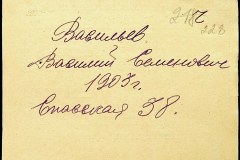 Васильев
Василий Семенович
1903 г.
Спасская 38.